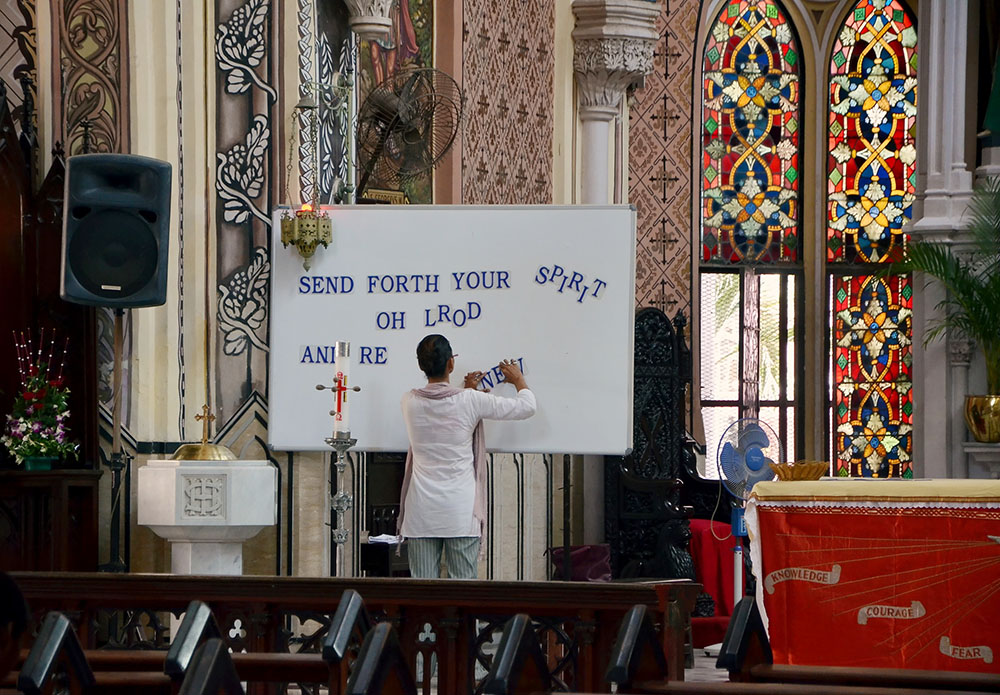 SEND FORTH YOUR SPIRIT
OH LROD
AND RE NEW
IHS
KNOWLEDGE
COURAGE
FEAR